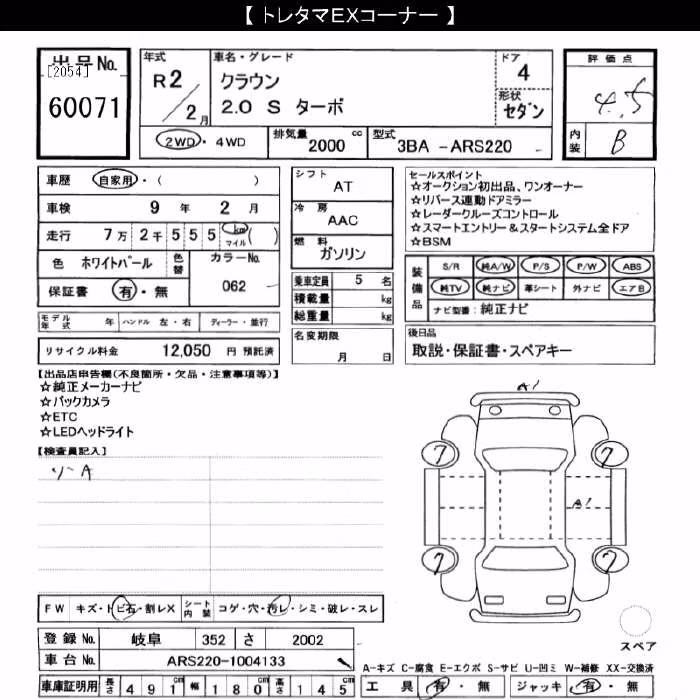 【 トレタマEXコーナー 】
出品No.
[2054]
60071
年式
R2/2月
車名・グレード
クラウン
2.0 S ターボ
ドア
4
形状
セダン
評価点
4.5
内装
B
2WD・4WD
排気量
2000 cc
型式
3BA -ARS220
車歴 自家用・( )
車検 9年 2月
走行 7万 2千 5 5 5 km マイル ( )
色 ホワイトパール 色替
カラーNo.
062
保証書 有・無
シフト
AT
冷房
AAC
燃料
ガソリン
乗車定員 5 名
積載量 kg
総重量 kg
セールスポイント
☆オークション初出品、ワンオーナー
☆リバース連動ドアミラー
☆レーダークルーズコントロール
☆スマートエントリー&スタートシステム全ドア
☆BSM
装備品
S/R 純A/W P/S P/W ABS
純TV 純ナビ 革シート 外ナビ エアB
ナビ型番:純正ナビ
モデル年式 年 ハンドル 左・右 ディーラー・並行
リサイクル料金 12,050 円 預託済
名変期限
月 日
後日品
取説・保証書・スペアキー
【出品店申告欄(不良箇所・欠品・注意事項等)】
☆純正メーカーナビ
☆バックカメラ
☆ETC
☆LEDヘッドライト
【検査員記入】
ソーA
A1
7
7
A1
7
7
スペア
FW キズ・トビ石・割レX シート内装 コゲ・穴・汚レ・シミ・破レ・スレ
登録No. 岐阜 352 さ 2002
車台No. ARS220-1004133
A-キズ C-腐食 E-エクボ S-サビ U-凹ミ W-補修 XX-交換済
車庫証明用 長さ 491cm 幅 180cm 高さ 145cm
工具 有・無 ジャッキ 有・無